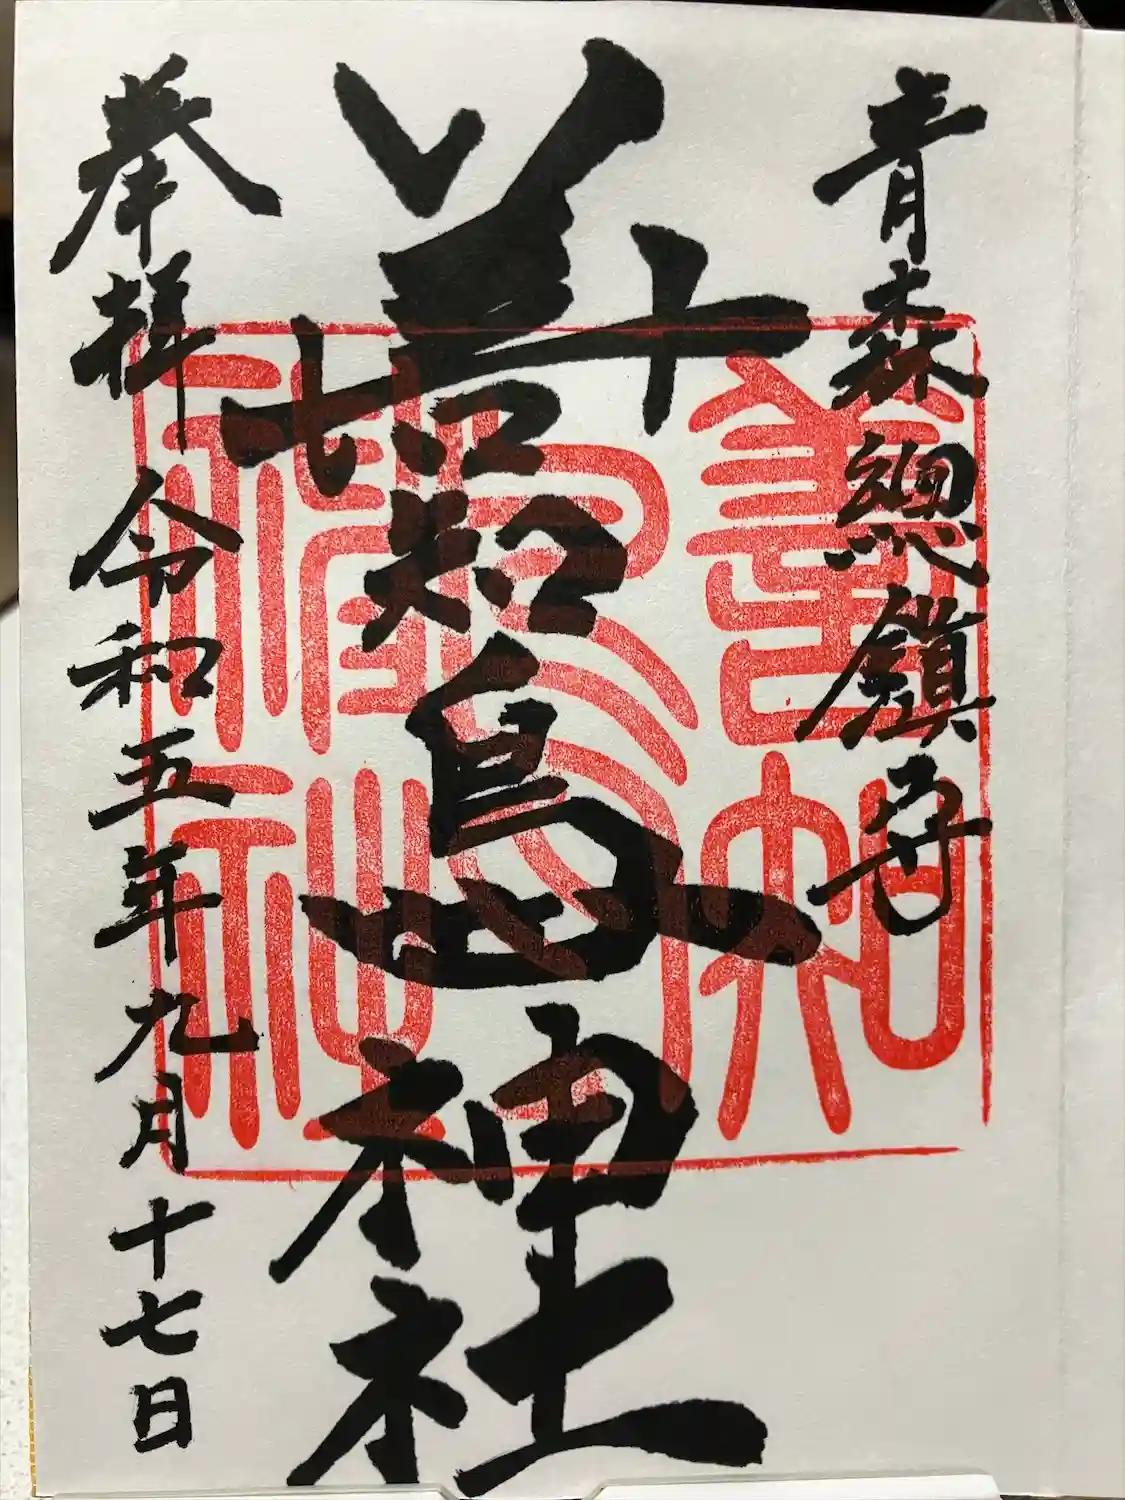 青森總鎮守
善知鳥神社
奉拝
令和五年九月十七日